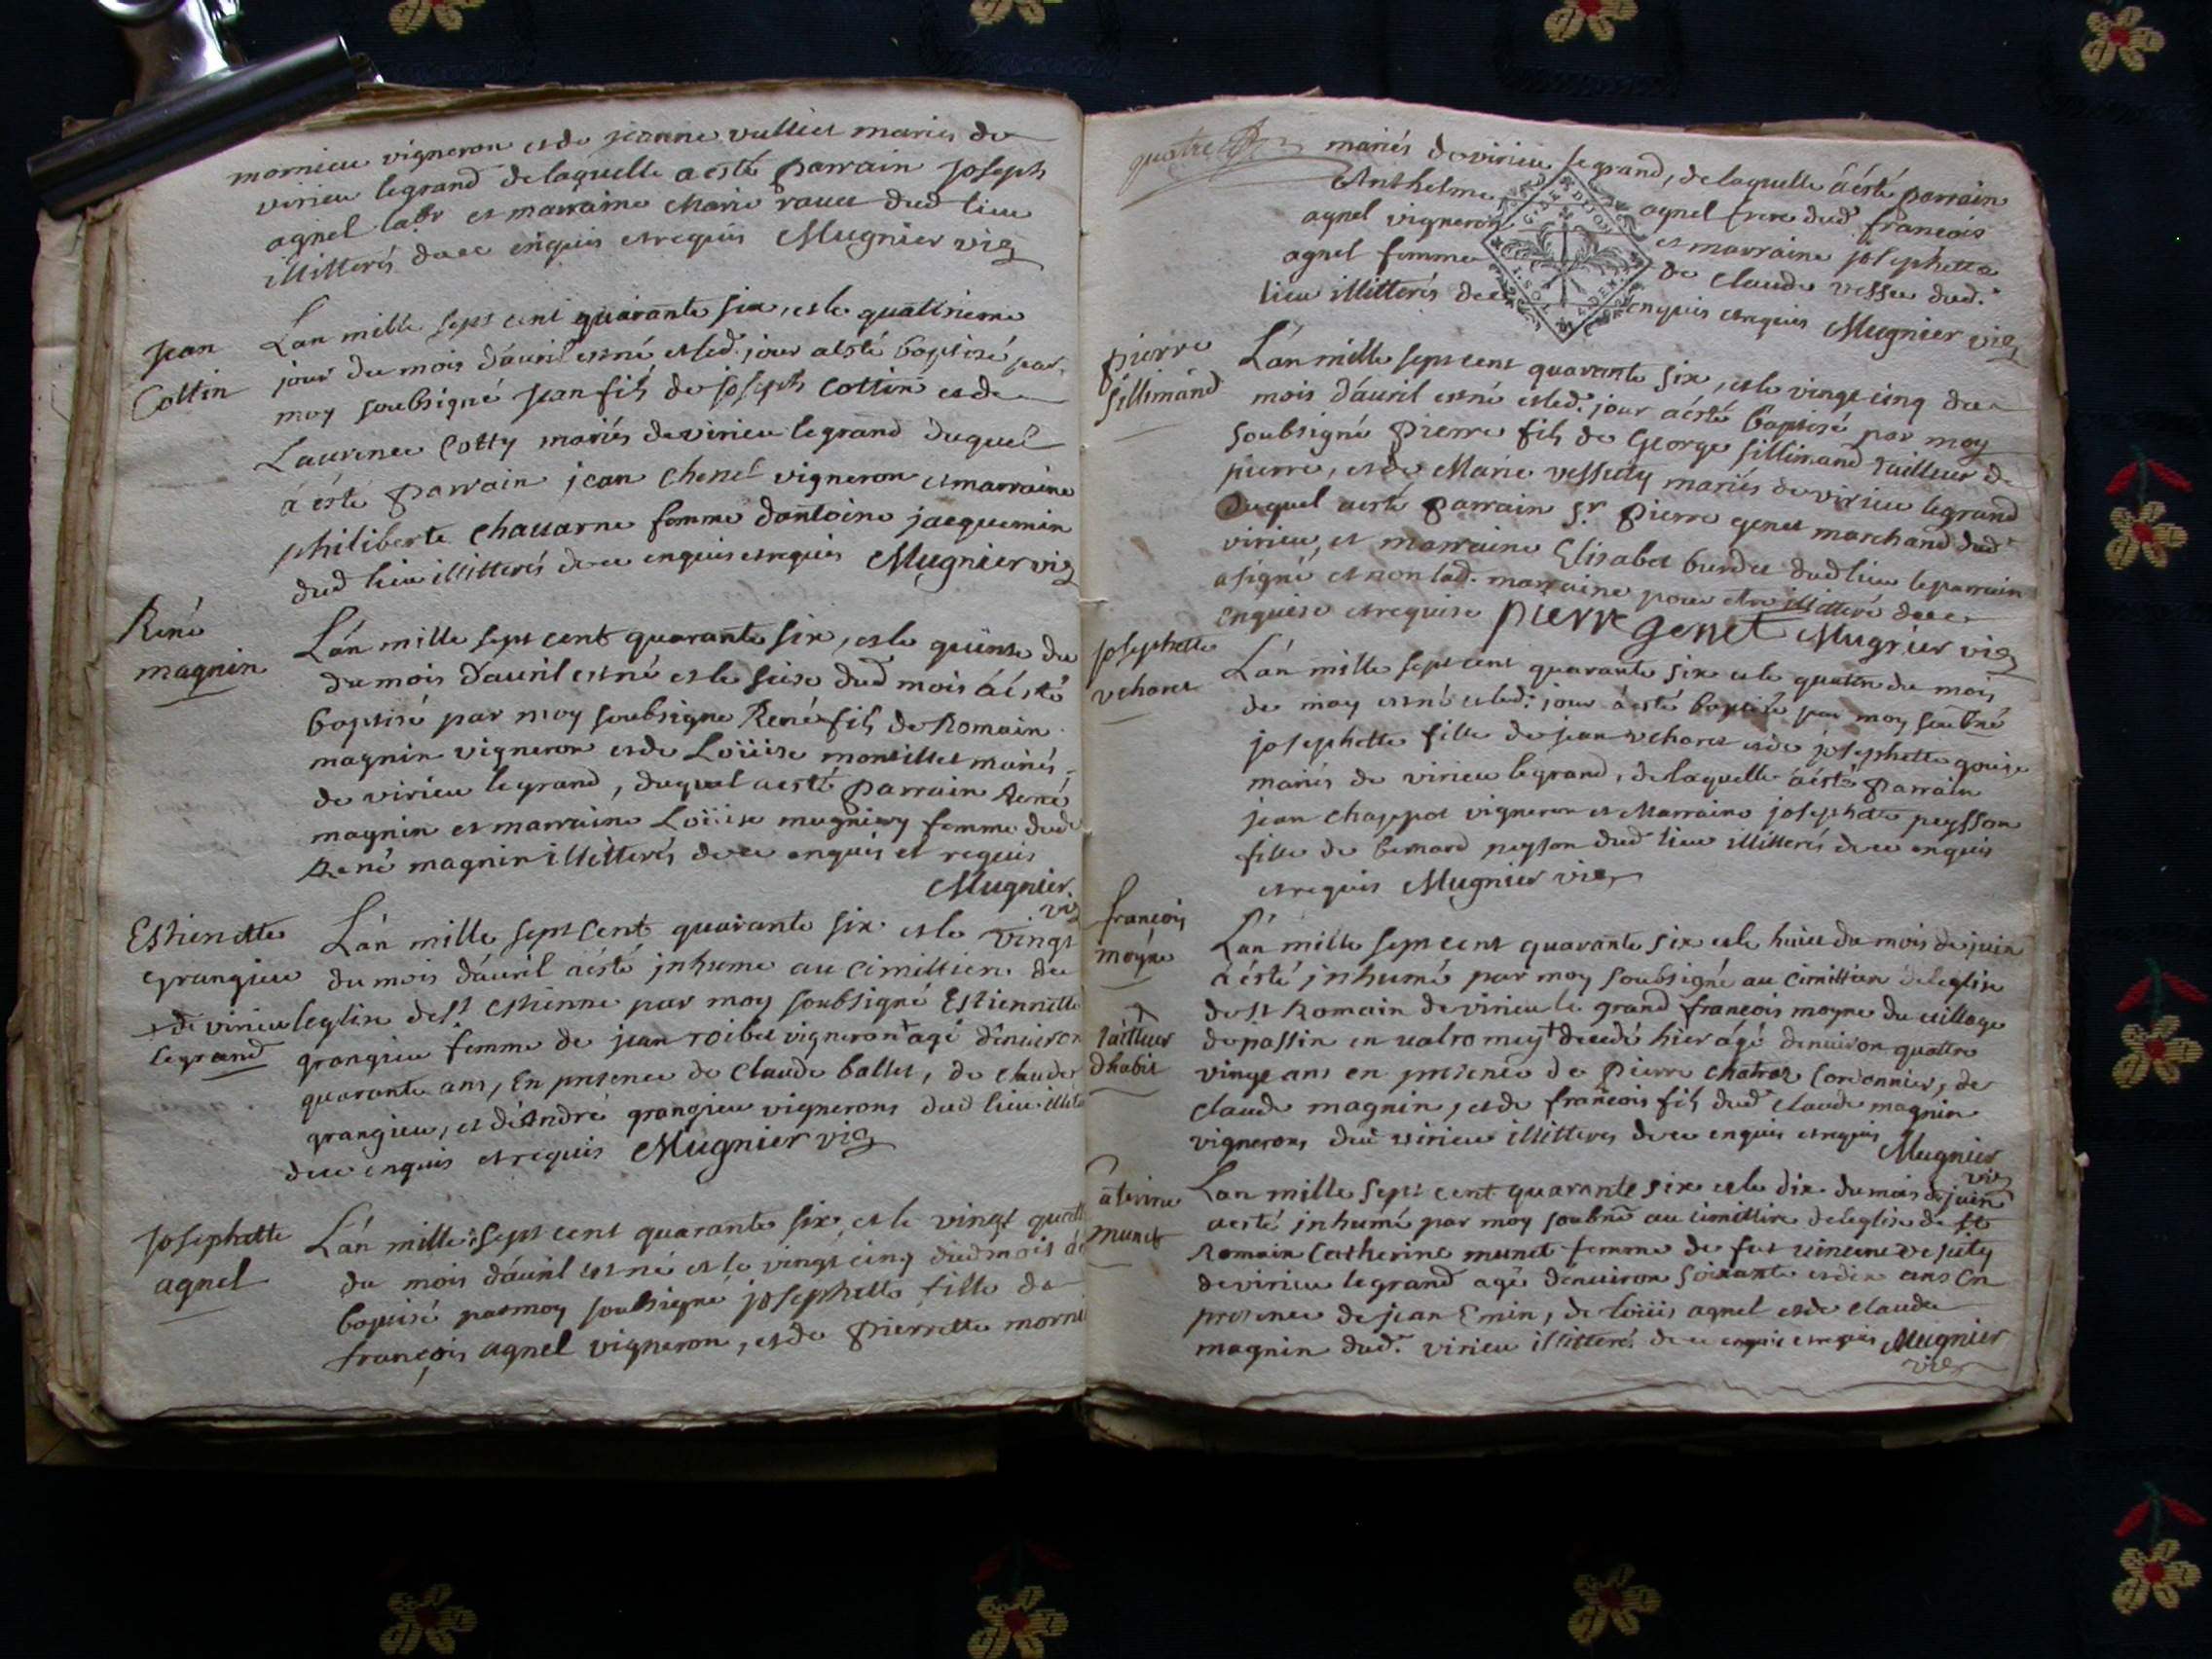 mornieu vigneron et de jeanne vulliet mariés de
virieu legrand de laquelle a esté parrain joseph
agnel labr et marraine Marie rauet dud lieu
illitterés de ce enquis et requis Mugnier vic
Jean
Cottin
Lan mille sept cent quarante six, et le quatrieme
jour du mois dáuril est né et led. jour a esté baptisé par
moy soubsigné jean fils de joseph Cottin et de
Laurence Cotty mariés de virieu legrand duquel
á ésté parrain jean Chenel vigneron et marraine
philiberte Chauarne femme dantoine jacquemin
dud lieu illitterés de ce enquis et requis Mugnier vic
René
magnin
Lán mille sept cent quarante six, et le quinse du
du mois dauril est né et le seise dud mois á ésté
baptisé par moy soubsigne René fils de Romain
magnin vigneron et de Loüise montillet mariés
de virieu le grand, duquel a esté parrain René
magnin et marraine Loüise mugniery femme dud
René magnin illitterés de ce enquis et requis
Mugnier
vic
Estienette
grangieu
de virieu
legrand
Lán mille sept cent quarante six et le vingt
du mois dáuril á ésté jnhume au cimittiere de
leglise de st estienne par moy soubsigné Estiennette
grangieu femme de jean roibet vigneron + agé denuiron
quarante ans, En presence de Claude ballet, de claude
grangieu, et dándré grangieu vignerons dud lieu illité
de ce enquis et requis Mugnier vic
Josephette
agnel
Lán mille sept cent quarante six et le vingt quatt
du mois dáuril est né et le vingt cinq dud mois á é
baptisé par moy soubsigné josephette fille de
françois agnel vigneron, et de pierrette morni
quatre
mariés de virieu legrand, de laquelle á ésté parrain
Anthelme agnel frere dud. françois
agnel vigneron et marraine josephette
agnel femme de claude vesse dud.
lieu illitterés de ce enquis et requis Mugnier vic
G. DE DIJON
pierre
sillimand
Lán mille sept cent quarante six, et le vingt cinq du
mois dáuril est né et led. jour á ésté baptisé par moy
soubsigné pierre fils de George sillimand tailleur de
pierre, et de Marie vessuty mariés de virieu legrand
duquel a esté parrain sr. pierre genet marchand dud
virieu, et marraine Elisabet burdet dud lieu le parrain
a signé et non lad. marraine pour etre illitteré de ce
enquise et requise pierre genet Mugnier vic
josephette
vchoret
Lán mille sept cent quarante six et le quatre du mois
de may est né et led. jour á ésté baptisé par moy soubné
josephette fille de jean vchoret et de josephette gouje
mariés de virieu legrand, de laquelle á ésté parrain
jean chappot vigneron et Marraine josephette peysson
fille de bernard peyson dud lieu illitterés de ce enquis
et requis Mugnier vic
françois
moÿne
+
tailleur
dhabit
Lán mille sept cent quarante six et le huict du mois de juin
á ésté jnhumé par moy soubsigné au cimittiere de leglise
de st Romain de virieu le grand françois moyne du uillage
de passin en ualromey + decedé hier ágé denuiron quattre
vingt ans en presence de pierre chatroz Cordonnier, de
claude magnin, et de françois fils dud claude magnin
vignerons dud virieu illitteres de ce enquis et requis
Mugnier
vic
Caterine
munet
Lan mille sept cent quarante six et le dix du mois de juin
a esté jnhumé par moy soubné au cimittire de leglise de st
Romain Catherine munet femme de fut uincent vesuty
de virieu legrand agé denuiron soixante et dix ans En
presence de jean Emin, de loüis agnel et de claude
magnin dud. virieu illitterés de ce enquis et requis Mugnier
vic